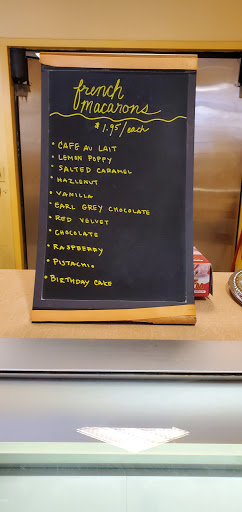 french
macarons
$1.95/each
• CAFE AU LAIT
• LEMON POPPY
• SALTED CARAMEL
• HAZLENUT
• VANILLA
• EARL GREY CHOCOLATE
• RED VELVET
• CHOCOLATE
• RASPBERRY
• PISTACHIO
• BIRTHDAY CAKE